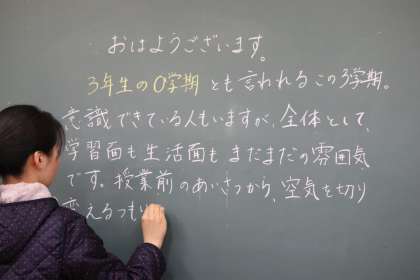 おはようございます。
3年生の0学期 とも言われるこの3学期。
意識できている人もいますが、全体として、
学習面も生活面もまだまだの雰囲気
です。授業前のあいさつから、空気を切り
変えるつもり